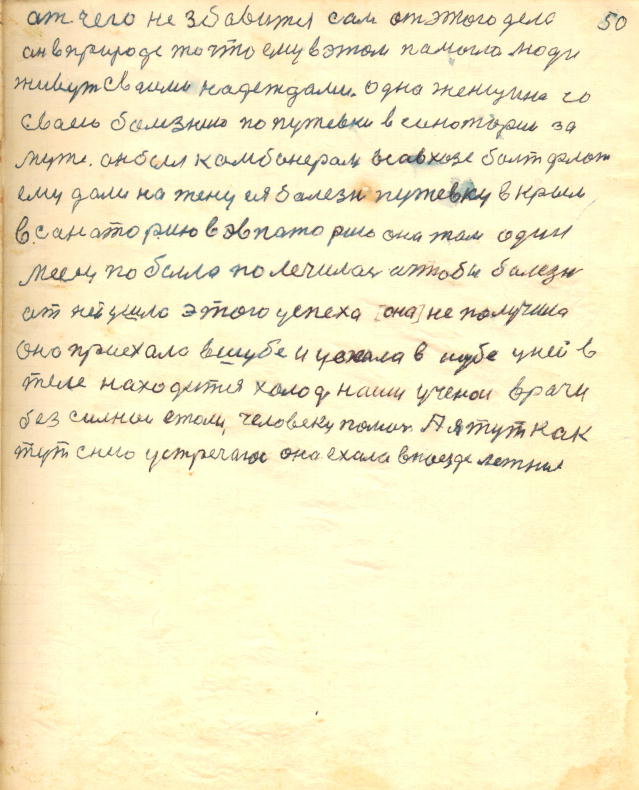 50
ат чего не збавится сам от этого дела
он в природе то что ему в этом памогла люди
живут своими надеждами. одна женщина со
сваею балезнию по путевки в санотории за
муж. он был камбанерам в савхозе
ему дали на жену ея балезн путевку в крым
в санаторию в эвпаторию она там один
месец побыла полечилас штобы балезн
ат ней ушла этого успеха [она] не получила
она приехала в шубе и уехала в шубе у ней в
теле находится холод наши ученои врачи
без силнои стали человеку Помоч А я тут как
тут с нию устречаюс она ехала в поезде летние